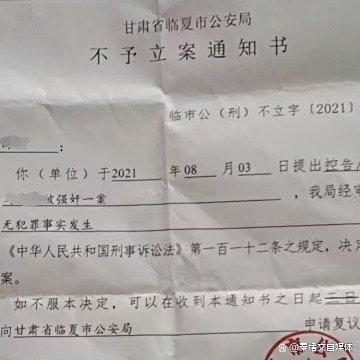 甘肃省临夏市公安局
不予立案通知书
临市公（刑）不立字〔2021〕
：
你（单位）于2021年08月03日提出控告
被强奸一案，我局经审
无犯罪事实发生
《中华人民共和国刑事诉讼法》第一百一十二条之规定，决定
案。
如不服本决定，可以在收到本通知之日起三日
向甘肃省临夏市公安局申请复议